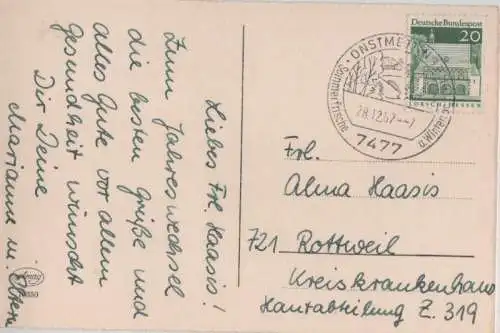 Liebes Frl. Haasis!
Zum Jahreswechsel
die besten Grüße und
alles Gute vor allem
Gesundheit wünscht
Dir Deine
Marianne u. Eltern
Deutsche Bundespost
20
LORSCH/HESSEN
ONSTMETTINGEN
28.12.67
Sommerfrische
u. Winter
7477
Frl.
Alma Haasis
721 Rottweil
Kreiskrankenhaus
Hautabteilung Z. 319